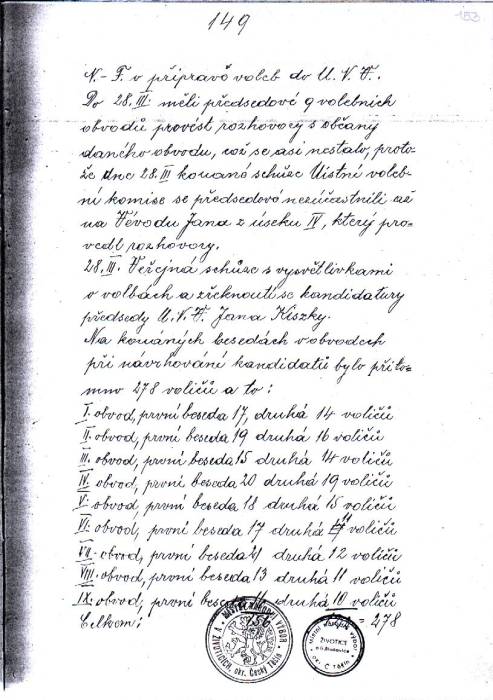 149
153
N.-F. v přípravě voleb do M.N.V.
Do 28.III. měli předsedové 9 volebních
obvodů provést rozhovory s občany
daného obvodu, což se asi nestalo, proto-
že dne 28.III konané schůze Místní voleb-
ní komise se předsedové nezúčastnili až
na Vévodu Jana z úseku IV, který pro-
vedl rozhovory.
28.III. Veřejná schůze s vysvětlivkami
o volbách a zřeknutí se kandidatury
předsedy M.N.V. Jana Kiszky.
Na konaných besedách v obvodech
při navrhování kandidatů bylo přito-
mno 278 voličů a to:
I. obvod, první beseda 17, druhá 14 voličů
II. obvod, první beseda 19 druhá 16 voličů
III. obvod, první beseda 15 druhá 14 voličů
IV. obvod, první beseda 20 druhá 19 voličů
V. obvod, první beseda 18 druhá 15 voličů
VI. obvod, první beseda 17 druhá 11 voličů
VII. obvod, první beseda 21 druhá 12 voličů
VIII. obvod, první beseda 13 druhá 11 voličů
IX. obvod, první beseda druhá 10 voličů
Celkem: 156 = 278
MÍSTNÍ NÁRODNÍ VÝBOR V ŽIVOTICÍCH, okr. Český Těšín
ŽIVOTICE